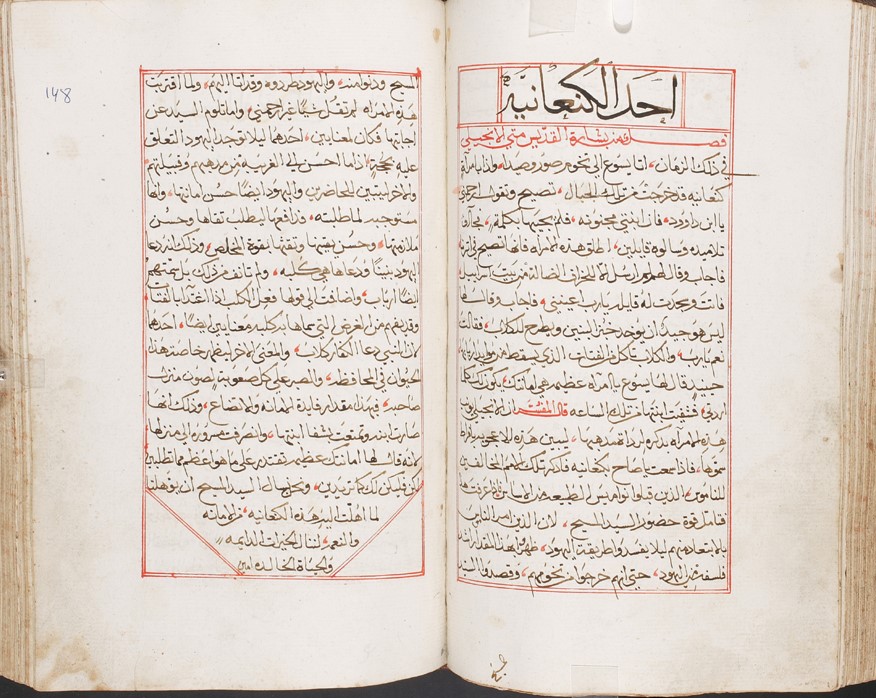 احد الكنعانية
فصل من بشارة القديس متي الانجيلي
في ذلك الزمان، اتا يسوع الي تخوم صور وصيدا، واذا بامراه
كنعانيه قد خرجت من تلك الجبال، تصيح وتقول ارحمني
يا ابن داوود، فان ابنتي مجنونه، فلم يجيبها بكلمة،
تلاميذه وسالوه قايلين، اطلق هذه الامراه فانها تصيح في
فاجاب وقال لهم لم ارسل الا للخراف الضاله من بيت اسراييل
فاتت وسجدت له قايله يارب اعينني، فاجاب وقال لها
ليس هو جيد ان يوخد خبز البنين ويطرح للكلاب، فقالت
نعم يارب، والكلاب تاكل من الفتات الذي يسقط من موايد
حينيد قال لها يسوع يا امراه عظيمه هي امانتك، يكون لك كما
اردتي، فشفيت ابنتها من تلك الساعه قال المفسر ان الانجيلي
هذه الامراه بذكره
فاذا سمعت يا صاح بكنعانيه فتذكر تلك الامم المخالفين
للناموس، الذين قبلوا نواميس الطبيعه
فتامل قوة حضور السيد المسيح، لان الذين امر الناس
بالابتعاد منهم ليلا يفسدوا طريقت اليهود، ظهروا بهذا المقدار اشد
فلسفه من اليهود، حتي انهم خرجوا من تخومهم، وقصدوا السيد
148
المسيح ودنوا منه، واليهود طردوه وقد اتا اليهم، ولما اقتربت
هذه الامراه لم تقل شيًا غير ارحمني، واما تلوم السيد عن
اجابتها فكان لمعنايين، احدهما ليلا توجد اليهود التعلق
عليه بحجة، اذا ما احسن الي الغريبة من مرهمهم وقبيلتهم
والاخر ليتبين للحاضرين واليهود ايضًا حسن امانتها، وانها
مستوجبه لما طلبته، فدافعها ليطلب تقاها وحسن
ملازمتها، وحسن يقينها وثقتها بقوة المخلص، وذلك انه دعا
اليهود بنينًا ودعاها هي كلبه، ولم تانف من ذلك بل سمتهم
ايضًا ارباب، واضافت الي قولها فعل الكلاب اذا اغتد ابالفتات
وقد يفهم من الغرض التي سماها به كلبه معنايين ايضًا، احدهما
لان النبي دعا الكفار كلاب، والمعني الاخر ليظهر خاصة هذا
الحيوان في المحافظه، والصبر علي كل صعوبة لصون منزل
صاحبه، فبهذا مقدار فايدة الامانه والاتضاع، وذلك انها
صارت ابنه وتمتعت بشفا ابنتها، وانصرفت مسروره الي منزلها
لانه قال لها امانتك عظيمه تقتدر علي ما هو اعظم مما تطلبي
لكن فليكن لك كما تريدين، ونحن نسال السيد المسيح ان يوهلنا
لما اهلت اليه هذه الكنعانيه، من الامانه
والنعمه، لننال الخيرات الدايمه
والحياة الخالده امين